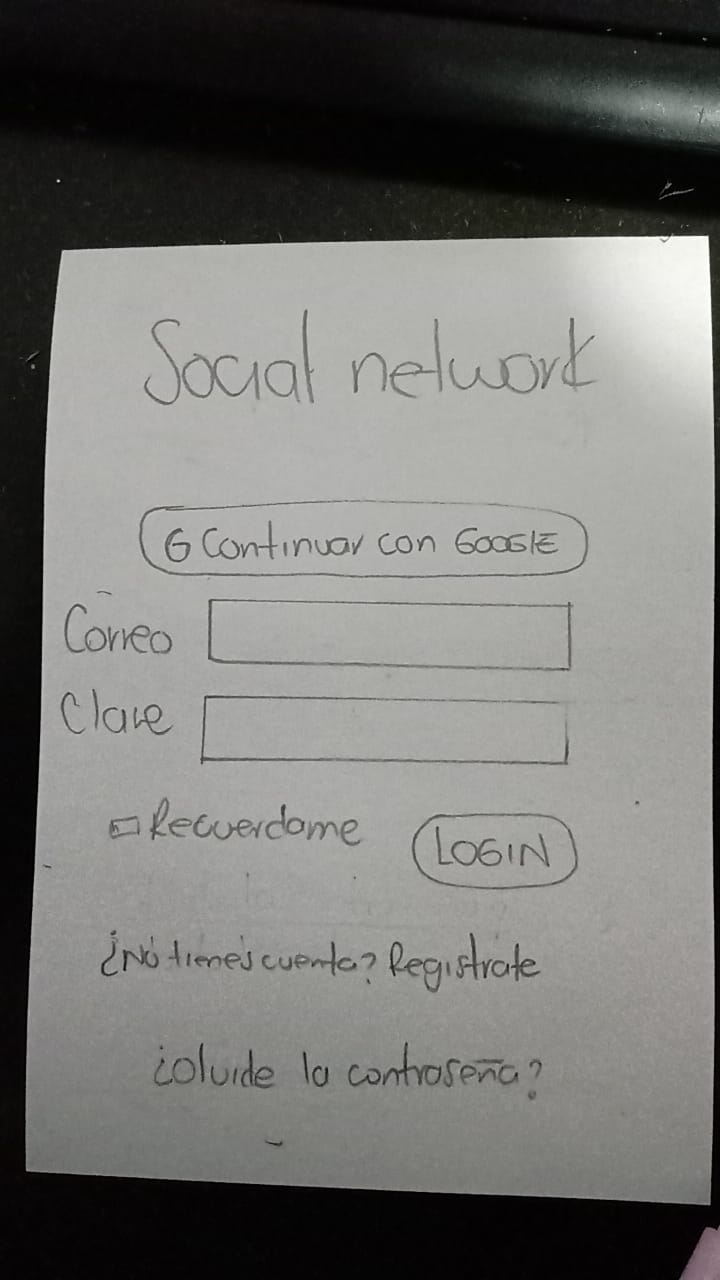 Social network
G Continuar con GOOGLE
Correo
Clave
Recuerdame
LOGIN
¿No tienes cuenta? Registrate
¿olvide la contraseña?